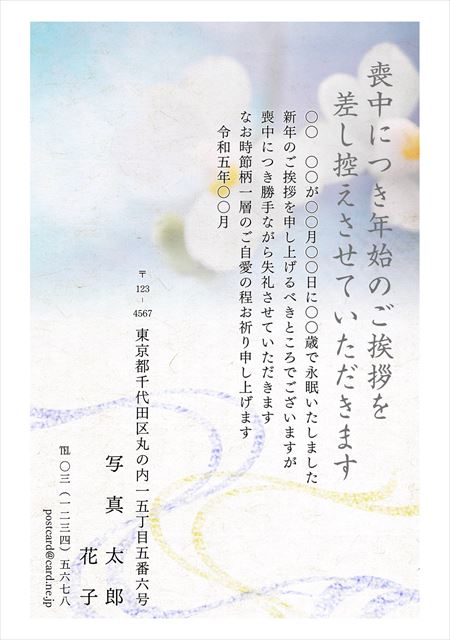 喪中につき年始のご挨拶を
差し控えさせていただきます
〇〇 〇〇が〇〇月〇〇日に〇〇歳で永眠いたしました
新年のご挨拶を申し上げるべきところでございますが
喪中につき勝手ながら失礼させていただきます
なお時節柄一層のご自愛の程お祈り申し上げます
令和五年〇〇月
〒123-4567 東京都千代田区丸の内一五丁目五番六号
写真太郎
花子
℡〇三(一二三四)五六七八
postcard@card.ne.jp